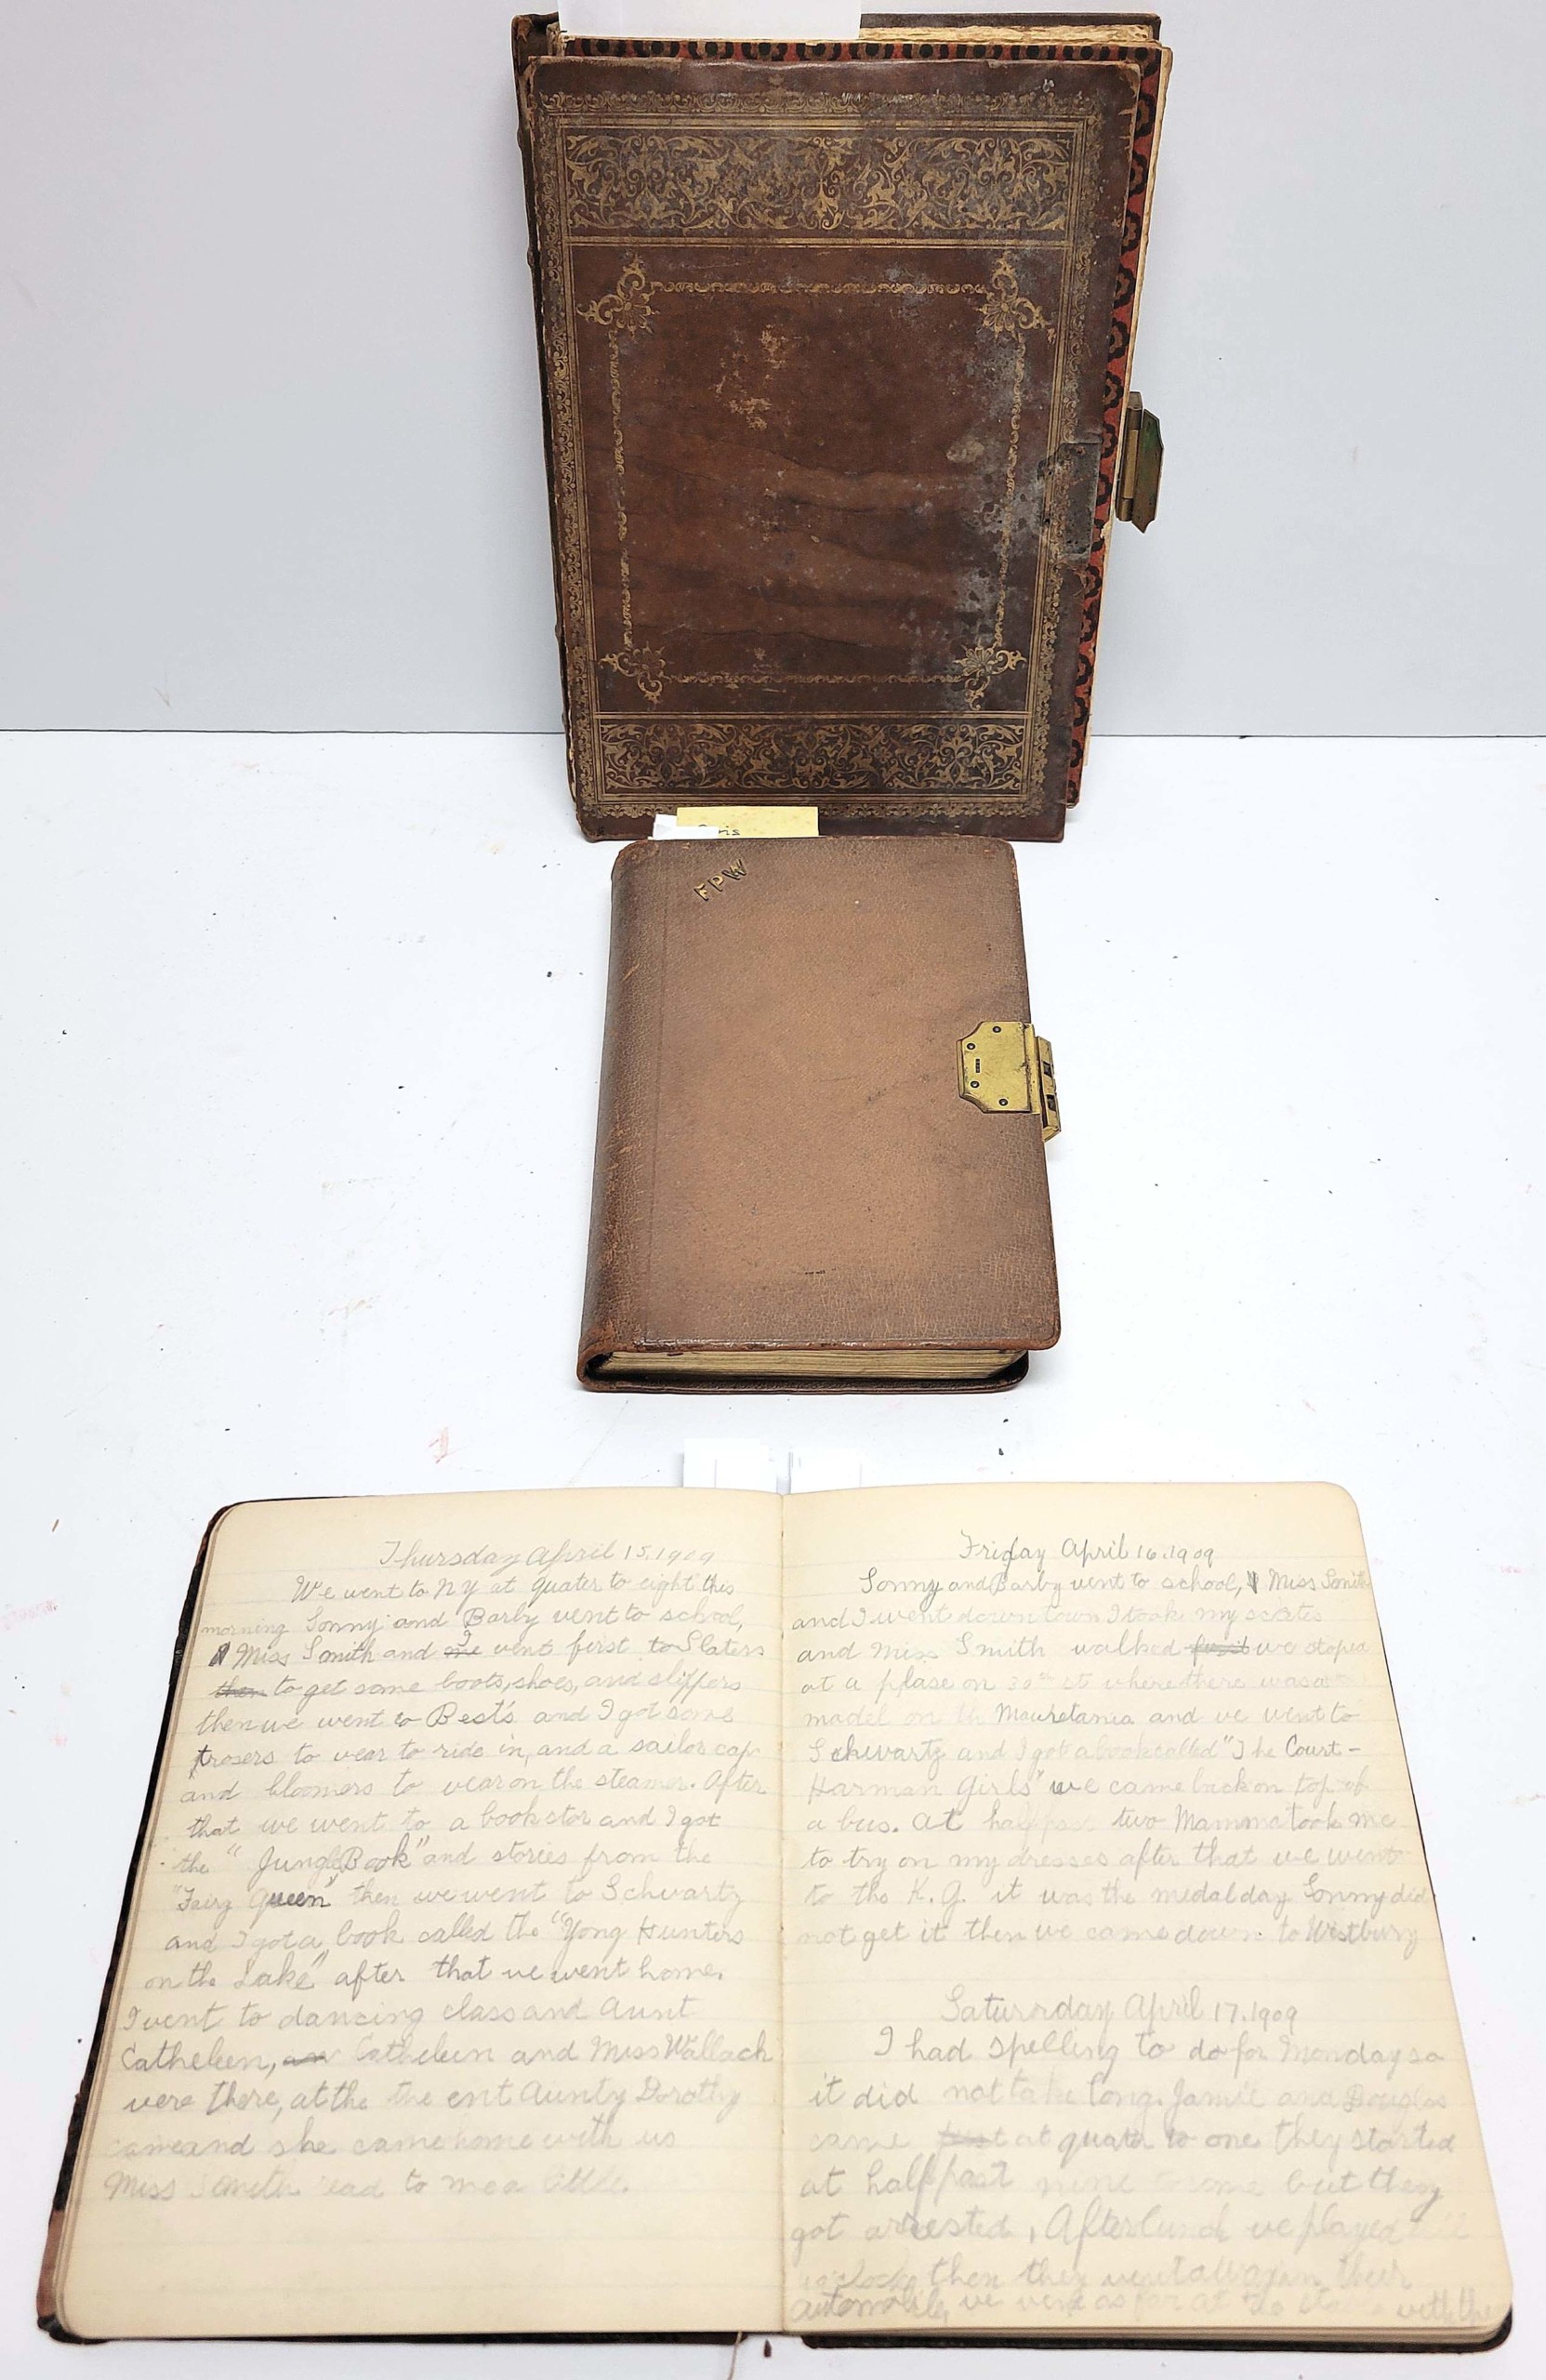 FPW
Thursday April 15.1909
We went to NY at quater to eight this
morning Sonny and Barby went to school,
Miss Smith and me I went first to Slaters
then to get some boots, shoes, and slippers
then we went to Best's and I got some
trosers to wear to ride in, and a sailor cap
and bloomers to wear on the steamer. After
that we went to a book stor and I got
the "Jungle Book" and stories from the
"Fairy Queen" then we went to Schwartz
and I got a book called the "Yong Hunters
on the Lake" after that we went home.
I went to dancing class and Aunt
Catheleen, an Catheleen and Miss Wallach
were there, at the the ent Aunty Dorothy
came and she came home with us
Miss Smith read to me a little.
Friday April 16.1909
Sonny and Barby went to school, Miss Smith
and I went down town I took my scates
and Miss Smith walked we stoped
at a plase on 30th st where there was a
madel on th Mauretania and we went to
Schwartz and I got a book called "The Court-
Harman Girls" we came back on top of
a bus. At half past two Mamma took me
to try on my dresses after that we went
to the K. G. it was the medal day Sonny did
not get it then we came down to Westbury
Saturday April 17.1909
I had spelling to do for Monday so
it did not take long. Jamie and Douglas
came just at quater to one they started
at half past nine come but they
got arrested, After lunch we played
then they went away in their
automobile, we went as far at the with the